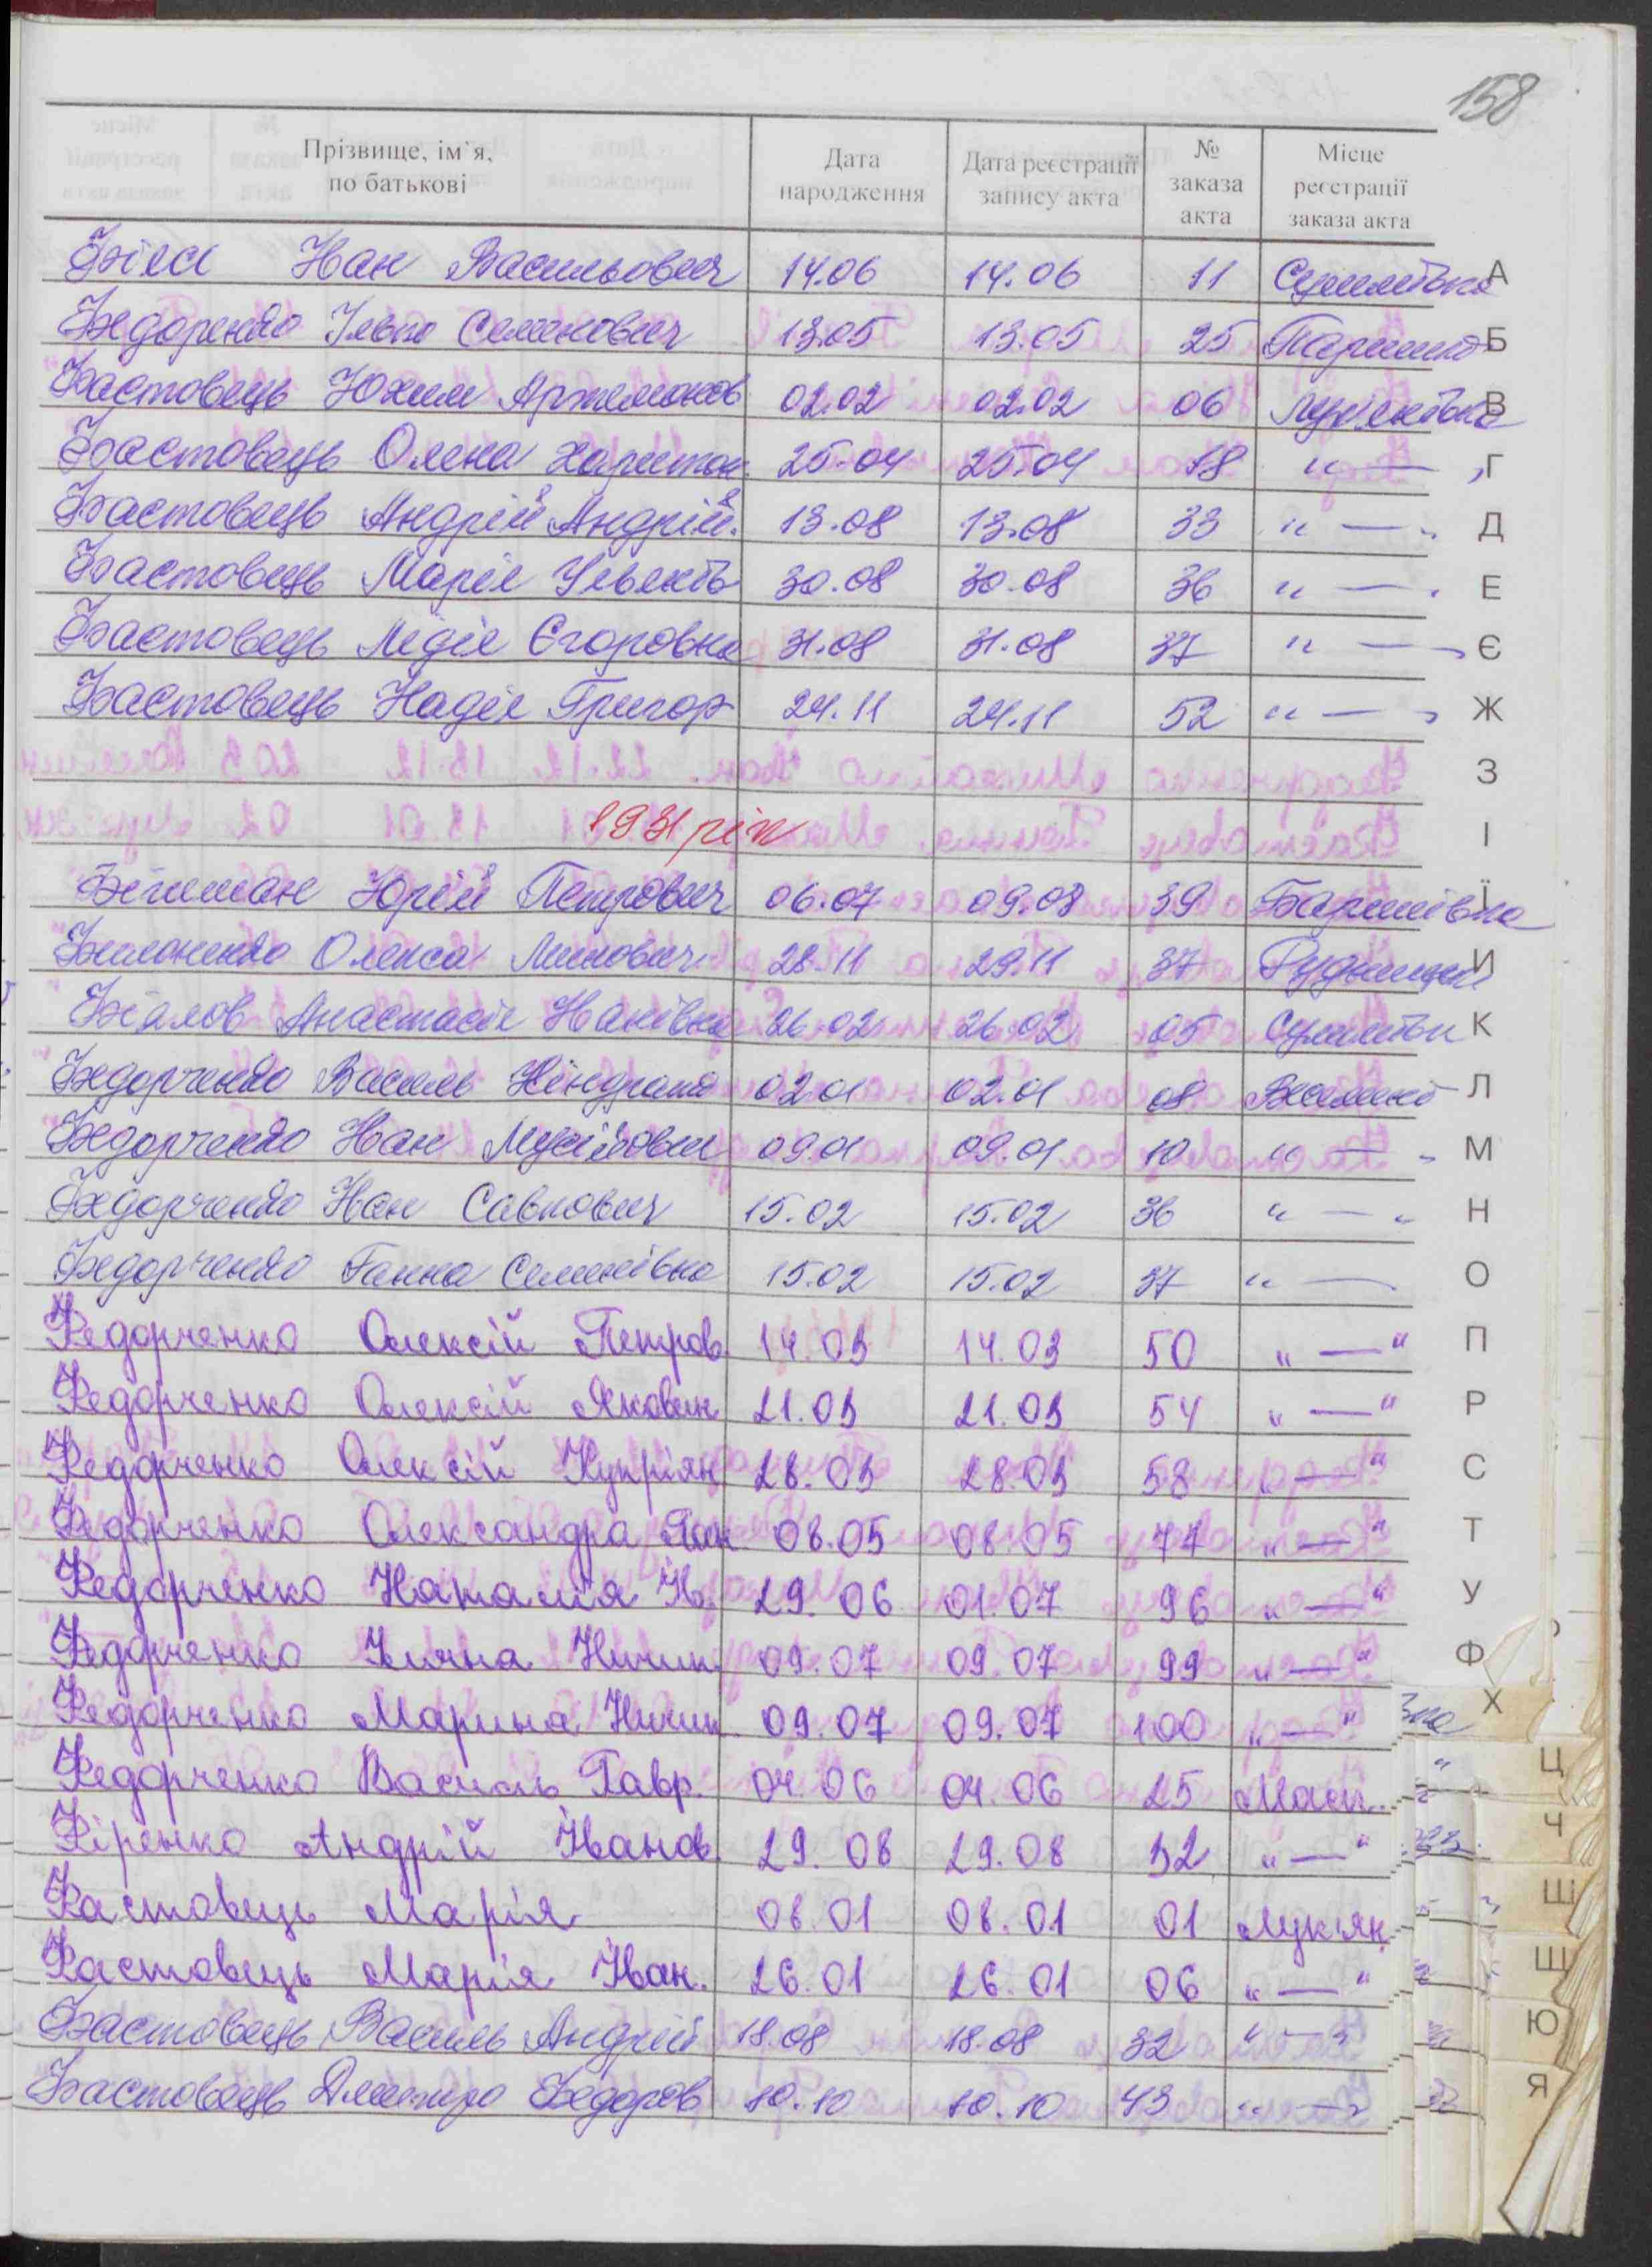 158
Прізвище, ім'я, по батькові | Дата народження | Дата реєстрації запису акта | № заказа акта | Місце реєстрації заказа акта
Іван Васильович 14.06 14.06 11
Федоренко Семенович 13.05 13.05 25
Фастовець Юхим 02.02 02.02 06
Фастовець Олена Харитон. 25.04 25.04 18 " — "
Фастовець Андрій Андрій. 13.08 13.08 33 " — "
Фастовець Марія 30.08 30.08 36 " — "
Фастовець Лідія Єгоровна 31.08 31.08 37 " — "
Фастовець Надія Григор 24.11 24.11 52 " — "
1931 рік
Юрій Петрович 06.07 09.08 39 Баришівка
Филоненко Олекса 28.11 29.11 37
Анастасія Іванівна 26.02 26.02 05
Федорченко Василь 02.01 02.01 08
Федорченко Іван Мусійович 09.01 09.01 10 " — "
Федорченко Іван Савкович 15.02 15.02 36 " — "
Федорченко Ганна Семенівна 15.02 15.02 37 " —
Федорченко Олексій Петров. 14.03 14.03 50 " — "
Федорченко Олексій Якович 21.03 21.03 54 " — "
Федорченко Олексій Купріян 28.03 28.03 58 " — "
Федорченко Олександра 08.05 08.05 77 " — "
Федорченко Наталія Ів. 29.06 01.07 96 " — "
Федорченко Уляна Ничип. 09.07 09.07 99 " — "
Федорченко Марина Ничип. 09.07 09.07 100 " — "
Федорченко Василь Гавр. 04.06 04.06 25
Фіренко Андрій Іванов. 29.08 29.08 32 " — "
Фастовець Марія 08.01 08.01 01 Лук'ян.
Фастовець Марія Іван. 26.01 26.01 06 " — "
Фастовець Василь Андрій 18.08 18.08 32 " — "
Фастовець Дмитро Федоров 10.10 10.10 43 " — "
А
Б
В
Г
Д
Е
Є
Ж
З
І
Ї
И
К
Л
М
Н
О
П
Р
С
Т
У
Ф
Х
Ц
Ч
Ш
Щ
Ю
Я